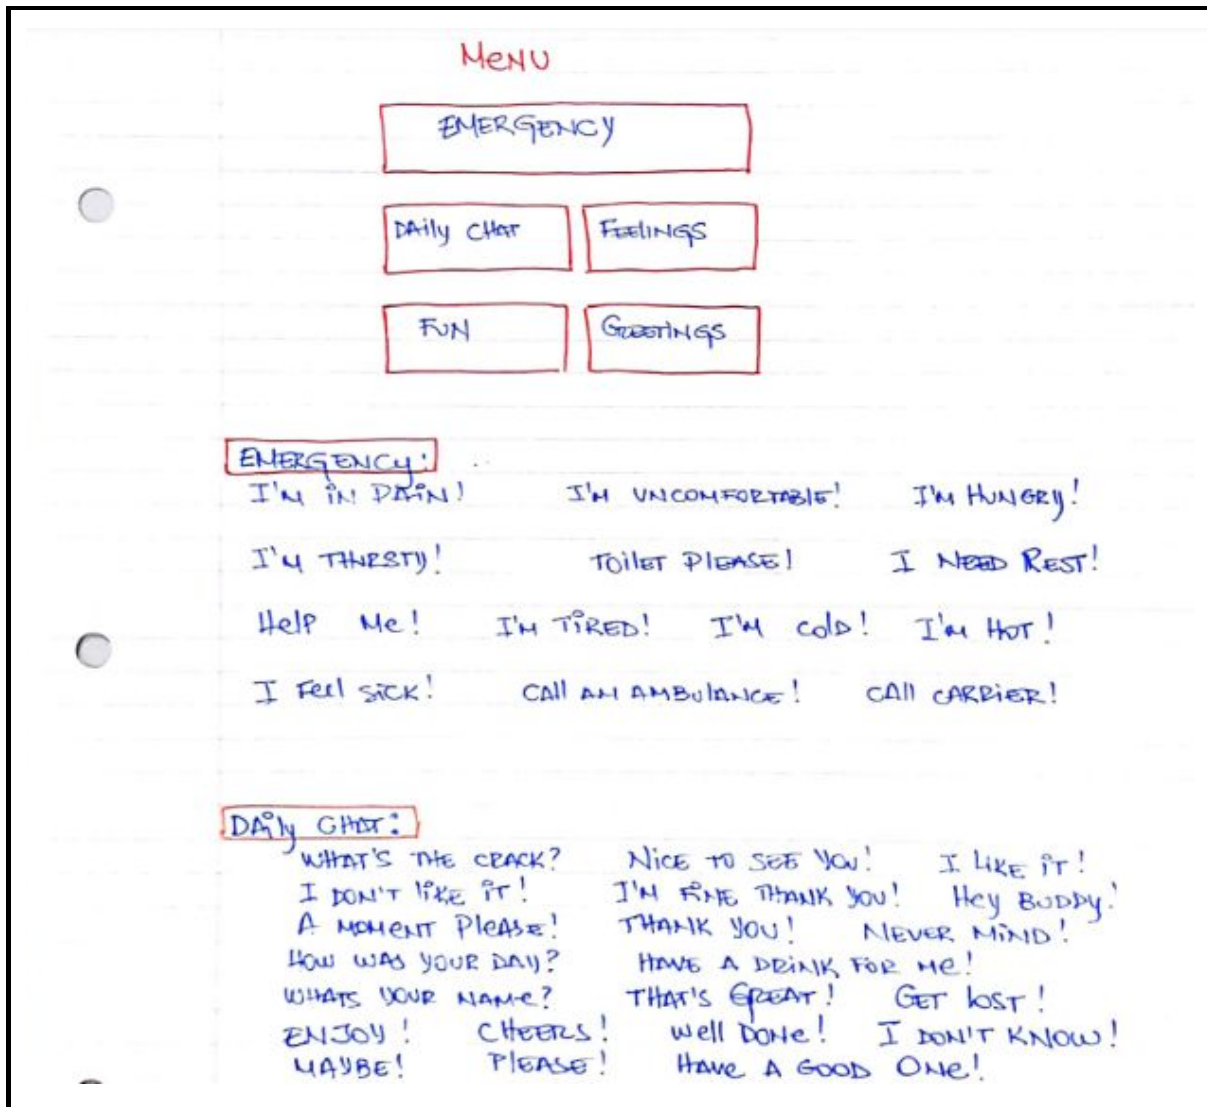 MENU
EMERGENCY
DAily CHAT FEELINGS
FUN GREETINGS
EMERGENCY:
I'M IN PAIN! I'M UNCOMFORTABLE! I'M HUNGRY!
I'M THIRSTY! TOILET PLEASE! I NEED REST!
Help Me! I'M TIRED! I'M COLD! I'M HOT!
I Feel SICK! CALL AN AMBULANCE! CALL CARRIER!
DAily CHAT:
WHAT'S THE CRACK? NICE TO SEE YOU! I LIKE IT!
I DON'T LIKE IT! I'M FINE THANK YOU! Hey BUDDY!
A MOMENT PLEASE! THANK YOU! NEVER MIND!
HOW WAS YOUR DAY? HAVE A DRINK FOR ME!
WHATS YOUR NAME? THAT'S GREAT! GET LOST!
ENJOY! CHEERS! Well DONE! I DON'T KNOW!
MAYBE! PLEASE! HAVE A GOOD ONE!